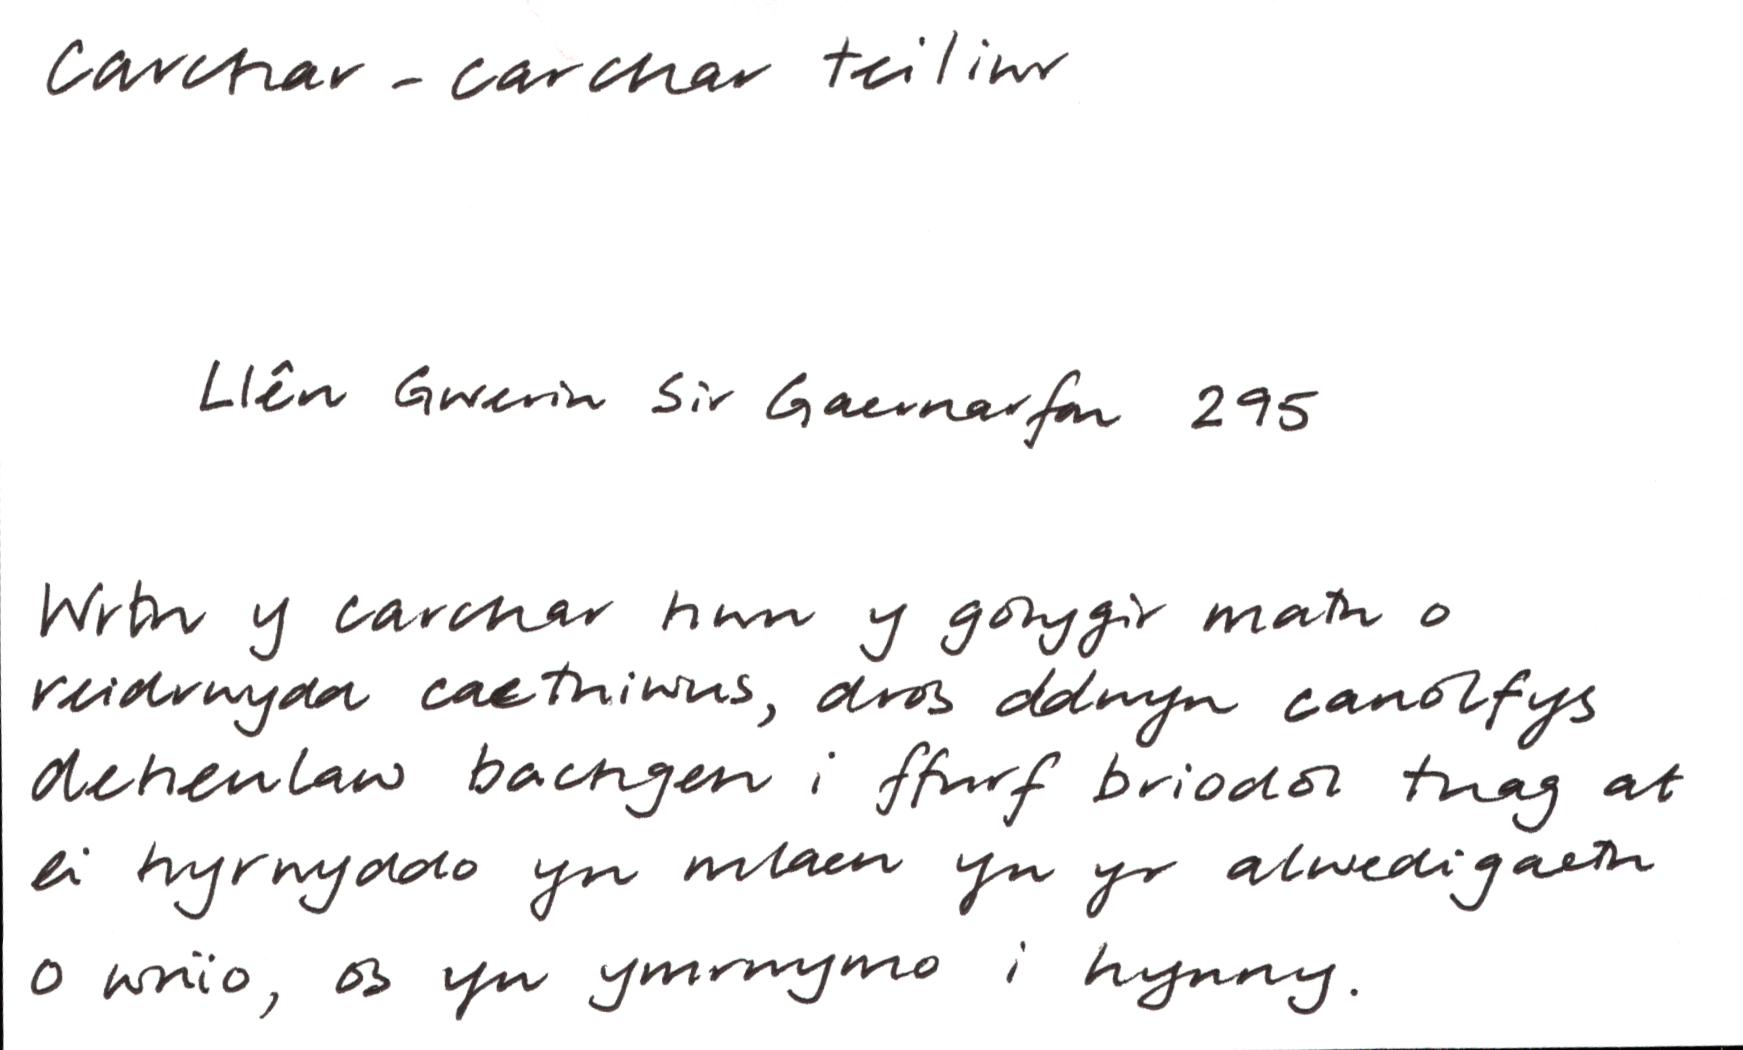 Carchar - carchar teiliwr
Llên Gwerin Sir Gaernarfon 295
Wrth y carchar hwn y golygir math o
reidrwydd caethiwus, dros ddwyn canolfys
dehenlaw bachgen i ffurf briodol tuag at
ei hyrwyddo yn mlaen yn yr alwedigaeth
o wnïo, os yn ymrwymo i hynny.